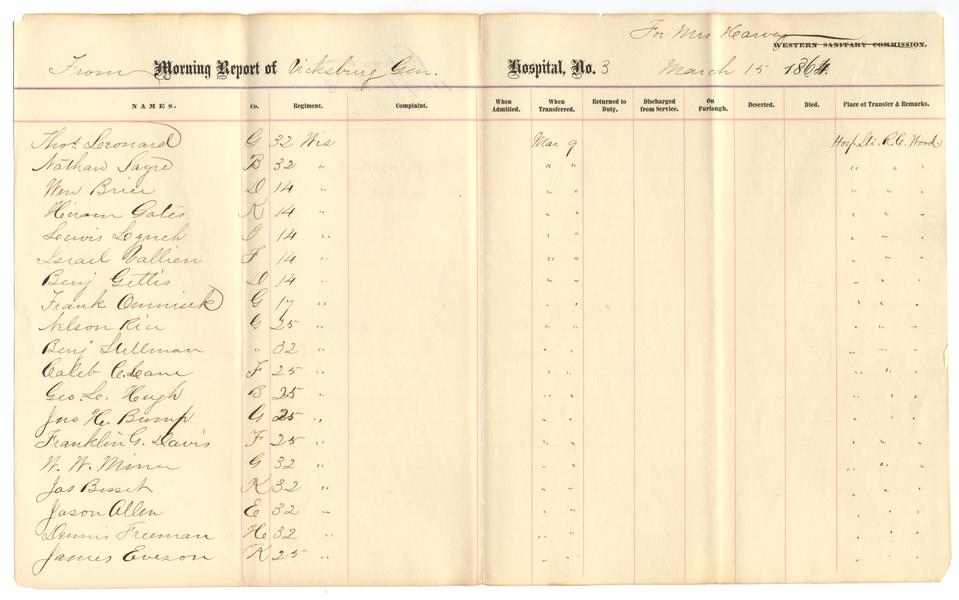 For Mrs Harvey
WESTERN SANITARY COMMISSION.
From Morning Report of Vicksburg Gen. Hospital, No. 3 March 15 1864.
NAMES. Co. Regiment. Complaint. When Admitted. When Transferred. Returned to Duty. Discharged from Service. On Furlough. Deserted. Died. Place of Transfer & Remarks.
Thos. Leonard G 32 Wis Mar 9 Hosp. Str. R. C. Wood
Nathan Sayre B 32 " " " " " "
Wm Brier D 14 " " " " " "
Hiram Gates K 14 " " " " " "
Lewis Lynch 14 " " " " " "
Israel Vallien F 14 " " " " " "
Benj Gettis D 14 " " " " " "
Frank G 17 " " " " " "
Nelson Rice G 25 " " " " " "
Benj Stillman " 32 " " " " " "
Caleb C. Lane F 25 " " " " " "
Geo. Le. Hugh B 25 " " " " " "
Jno H. Bump G 25 " " " " " "
Franklin G. Davis F 25 " " " " " "
W. W. Miner G 32 " " " " " "
Jas K 32 " " " " " "
Jason Allen E 32 " " " " " "
Dennis Freeman H 32 " " " " " "
James Eveson K 25 " " " " " "